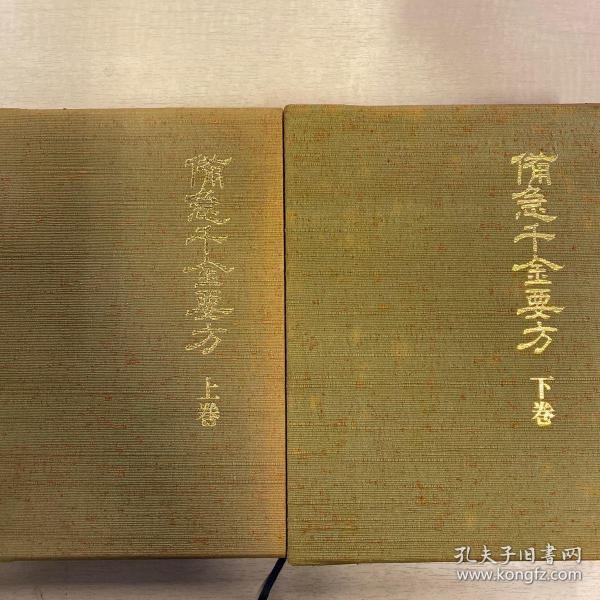 備急千金要方
上巻
備急千金要方
下巻
孔夫子旧書网
www.kongfz.com